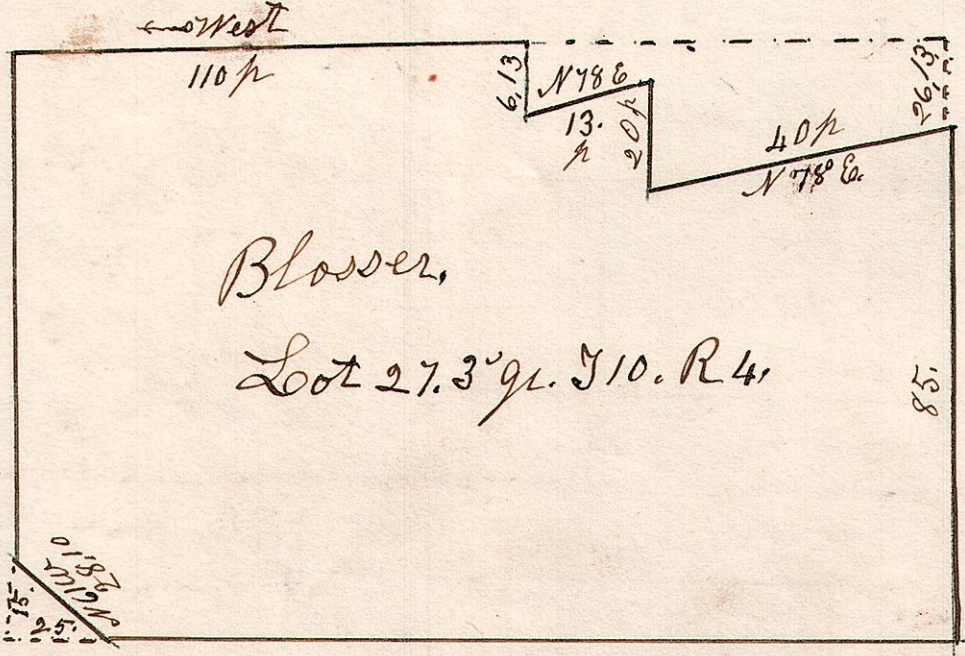 West
110 p
6,13
N 78 E
13.
p
20 p
40 p
N 78° E.
26,13
Blosser.
Lot 27. 3d qr. T10. R 4.
85.
N 61 W
28,10
15.
25.